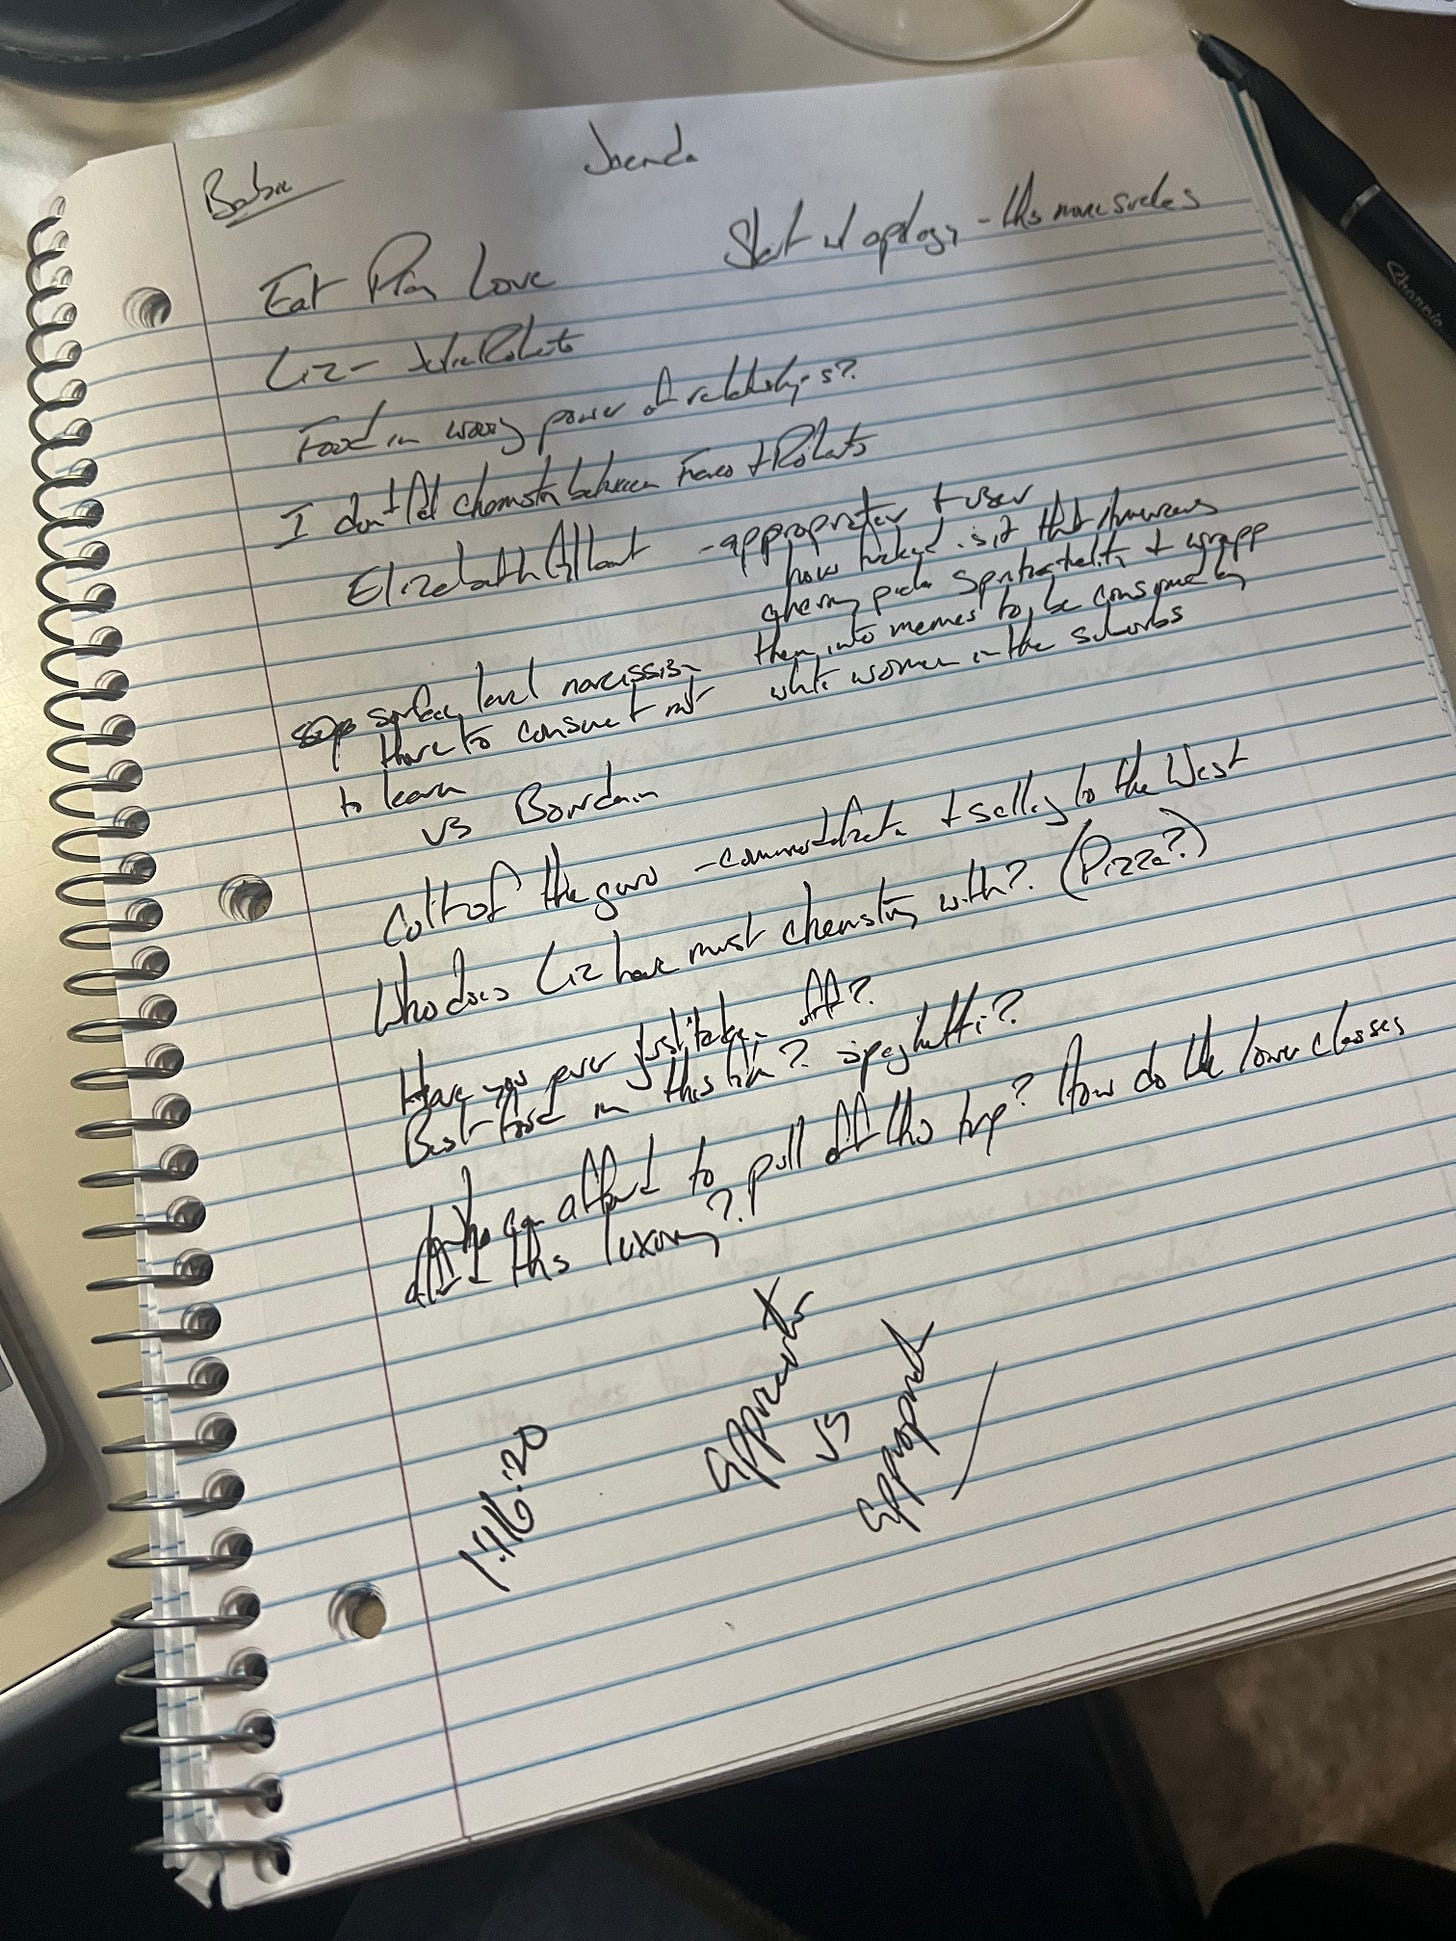 Eat Pray Love
Start w/ apology - this movie sucks
Liz - Julia Roberts
Food in wrong power of relationships?
I don't feel chemistry between Franco + Roberts
Elizabeth Gilbert - appropriator + user
how fucked is it that Americans
cherry pick spirituality + wrap
them into memes to be consumed by
white women in the suburbs
surface level narcissism
there to consume not
to learn
vs Bourdain
Cult of the guru - commodification + selling to the West
Who does Liz have most chemistry with? (Pizza?)
Have you ever just taken off?
Best food in this film? spaghetti?
who can afford to pull off this trip? How do the lower classes
afford this luxury?
appreciate
vs
appropriate
1:16:20
Channin